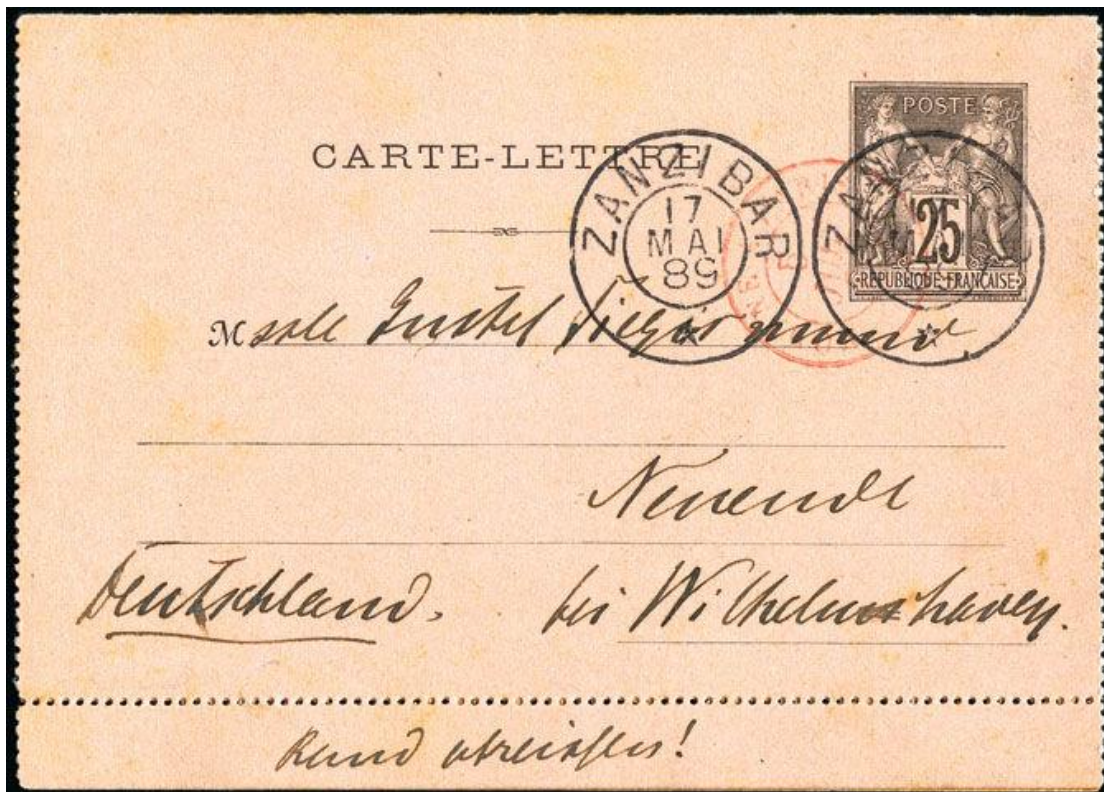 POSTE
CARTE-LETTRE
25
REPUBLIQUE FRANÇAISE
ZANZIBAR
17
MAI
89
ZANZIBAR
Mselle Gustel Siegismund,
Neuende
Deutschland. bei Wilhelmshaven.
Rand abreissen!